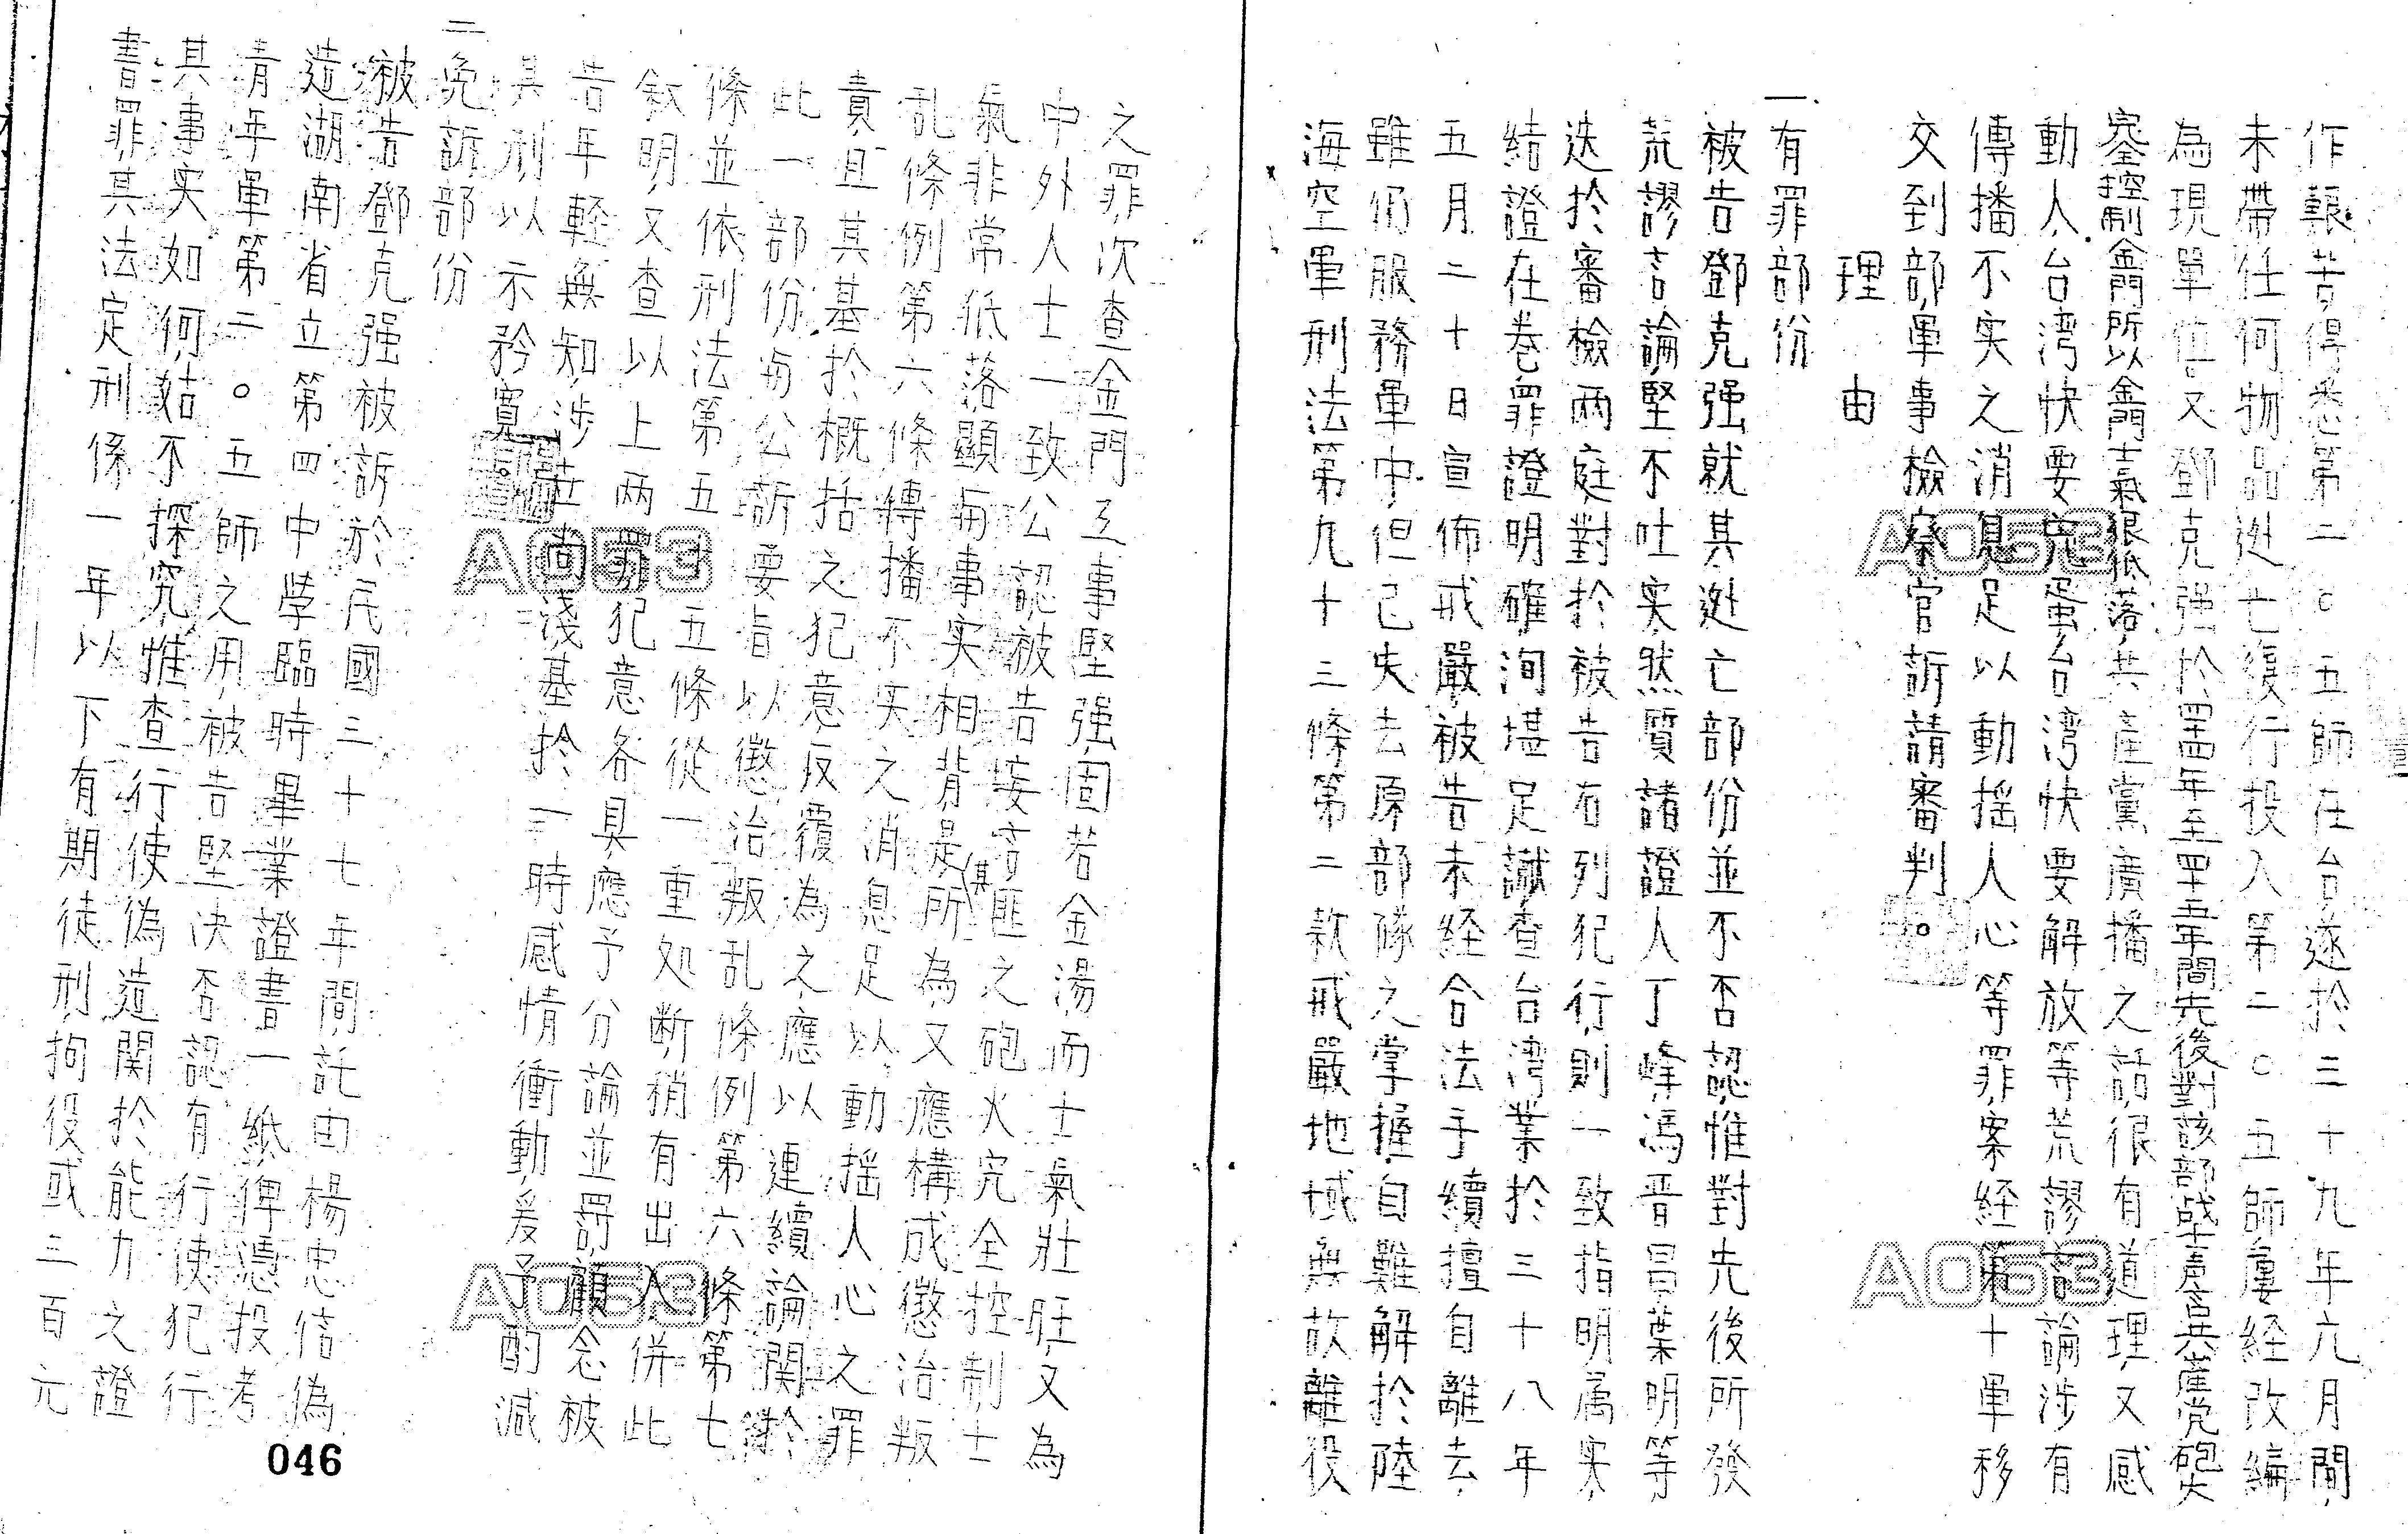 作艱苦得悉第二〇五師在台遂於三十九年六月間
未帶任何物品逃亡復行投入第二〇五師屢経改編
為現單位又鄧克强於四十四年至四十五年間先後對該部战士声言共產党砲火
完全控制金門所以金門士氣很低落共產黨廣播之話很有道理又感
動人台湾快要完蛋台湾快要解放等荒謬言論涉有
傳播不实之消息足以動摇人心等罪案経第十軍移
交到部軍事檢察官訴請審判。
理由
一有罪部份
被告鄧克强就其逃亡部份並不否認惟對先後所發
荒謬言論堅不吐实然質諸證人丁峰馮晋昌葉明等
迭於審檢兩庭對於被告右列犯行則一致指明属实
結證在卷罪證明確洵堪足讞查台湾業於三十八年
五月二十日宣佈戒嚴被告未経合法手續擅自離去
雖仍服務軍中但已失去原部隊之掌握自難解於陸
海空軍刑法第九十三條第二款戒嚴地域無故離役
之罪次查金門工事堅强固若金湯而士氣壯旺又為
中外人士一致公認被告妄言匪之砲火完全控制士
氣非常低落顯與事实相背是其所為又應構成懲治叛
乱條例第六條轉播不实之消息足以動摇人心之罪
責且其基於概括之犯意反覆為之應以連續論関於
此一部份與公訴要旨以懲治叛乱條例第六條第七
條並依刑法第五十五條從一重処断稍有出入併此
敘明又查以上兩罪犯意各具應予分論並罰顧念被
告年輕無知涉世尚淺基於一時感情衝動爰予酌減
其刑以示矜寬。
二免訴部份
被告鄧克强被訴於民國三十七年間託由楊忠信偽
造湖南省立第四中學臨時畢業證書一紙俾憑投考
青年軍第二〇五師之用被告堅決否認有行使犯行
其事实如何姑不探究惟查行使偽造関於能力之證
書罪其法定刑係一年以下有期徒刑拘役或三百元
A053
A053
A053
A053
046